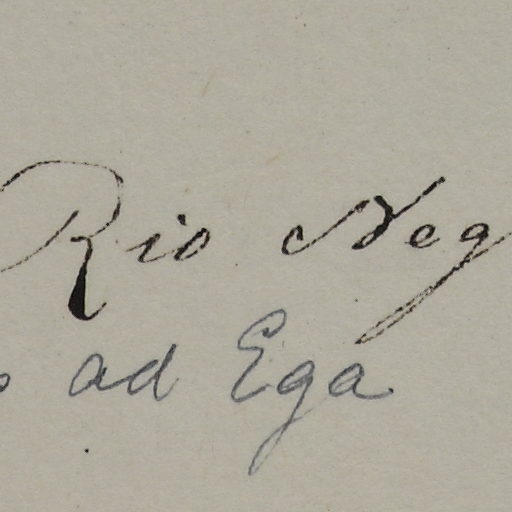 Rio Neg
o ad Ega